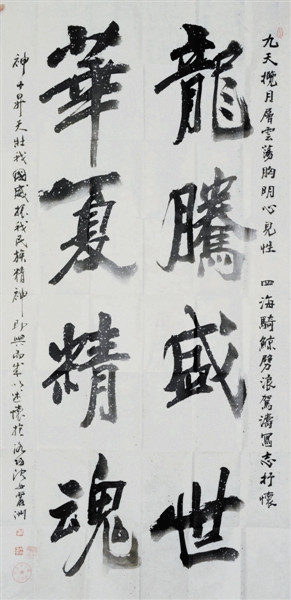 九天攬月層雲蕩胸明心見性 四海騎鯨劈浪駕濤寫志抒懷
龍騰盛世
華夏精魂
神十昇天壯我國威揚我民族精神即興而成以述懷於